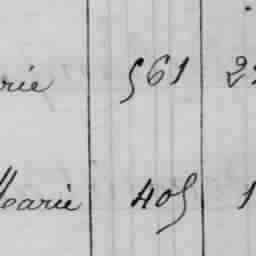 rie 561 2
Marie 405 1